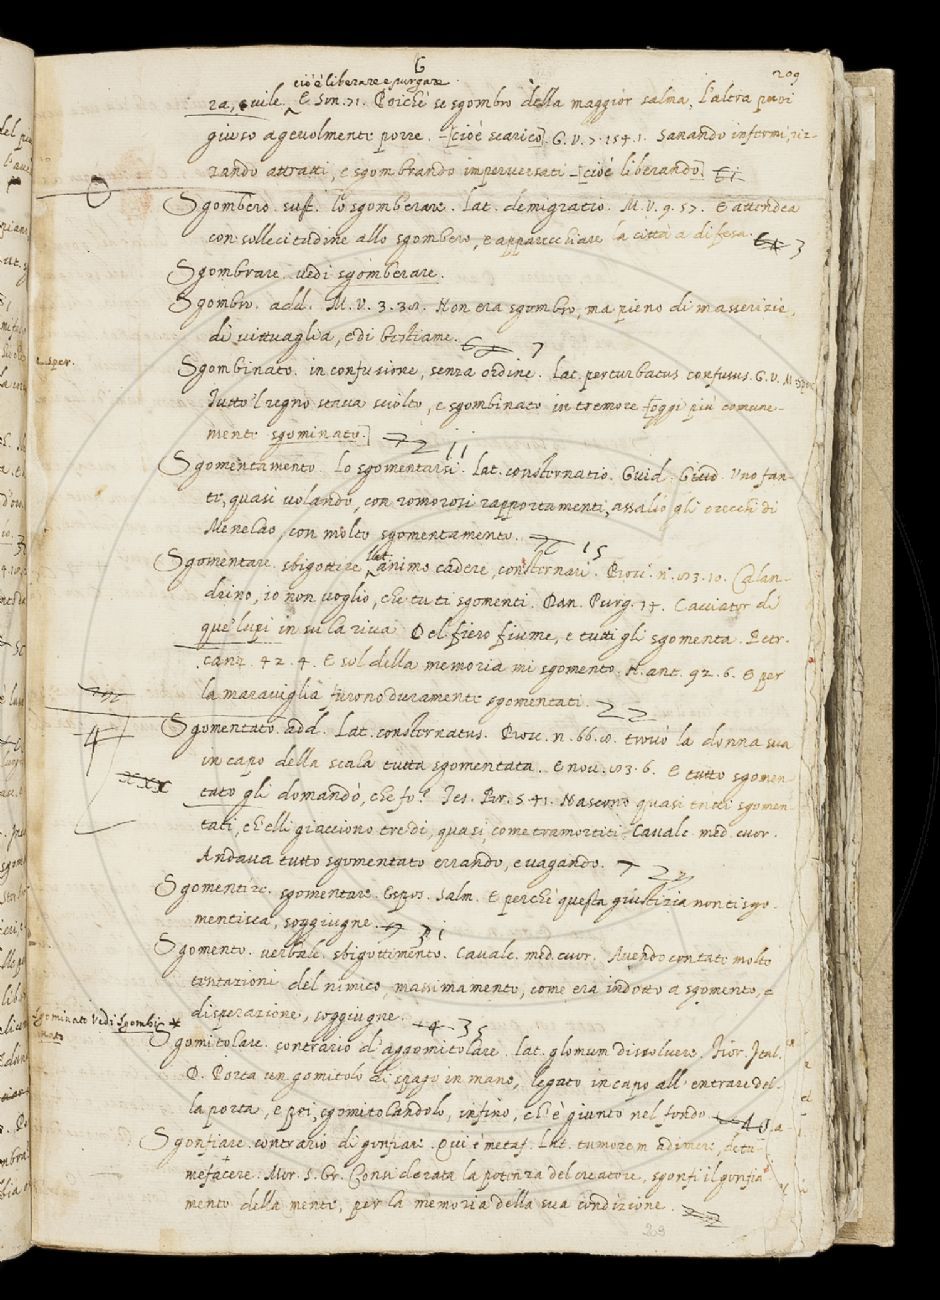 G
209
cioè liberare e purgare
za, e vile. E Son. 71. Poichè se sgombro della maggior salma, l'altra puoi
giuso agevolmente porre. [cioè scarico]. G. V. 7. 154. 1. Sanando infermi, riz-
zando attratti, e sgombrando imperversati [cioè liberando]
Sgombero. sust. lo sgomberare. Lat. demigratio. M. V. 9. 57. E attendea
con sollecitudine allo sgombero, e apparecchiare la città a difesa.
3
Sgombrare. vedi sgomberare.
Sgombro. add. M. V. 3. Non era sgombro, ma pieno di masserizie,
di vittuaglia, e di bestiame.
7
Sgombinato. in confusione, senza ordine. Lat. perturbatus confusus. G. V. M.
Tutto 'l regno stava sciolto, e sgombinato in tremore [oggi più comune-
mente sgominato.]
11
Sgomentamento. Lo sgomentarsi. Lat. consternatio. Guid. Giud. Uno fan-
te, quasi volando, con romorosi rapportamenti, assalìo gli orecchi di
Menelao, con molto sgomentamento.
15
Sgomentare. sbigottire lat. animo cadere, consternari. Bocc. n. 83. 10. Calan-
drino, io non voglio, che tu ti sgomenti. Dan. Purg. 14. Cacciator di
que' lupi in su la riva Del fiero fiume, e tutti gli sgomenta. Petr.
canz. 42. 4. E sol della memoria mi sgomento. N. ant. 92. 6. E per
la maraviglia furono duramente sgomentati.
22
4
Sgomentato. add. Lat. consternatus. Bocc. n. 66. 10. trovò la donna sua
in capo della scala tutta sgomentata. E nov. 83. 6. E tutto sgomen-
tato gli domandò, che fo? Tes. Br. 5. 41. Nascono quasi tutti sgomen-
tati, ch'elli giacciono tre dì, quasi, come tramortiti. Cavalc. med. cuor.
Andava tutto sgomentato errando, e vagando.
Sgomentire. sgomentare. Espos. Salm. E perchè questa giustizia non ti sgo-
mentisca, soggiugne.
31
Sgomento. verbale. sbigottimento. Cavalc. med. cuor. Avendo contate molte
tentazioni del nimico, massimamente, come era indotto a sgomento, e
disperazione, soggiugne.
35
Sgominato vedi Sgombinato *
Sgomitolare. contrario d'aggomitolare. lat. glomum dissolvere. Fior. Ital.
D. Porta un gomitolo di spago in mano, legato in capo all'entrare del-
la porta, e poi, sgomitolandolo, infino, ch'è giunto nel fondo
40
Sgonfiare. contrario di gonfiare. Qui è metaf. Lat. tumorem adimere, detu-
mefacere. Mor. S. Gr. Considerata la potenza del creatore, sgonfi il gonfia-
mento della mente, per la memoria della sua condizione.
209